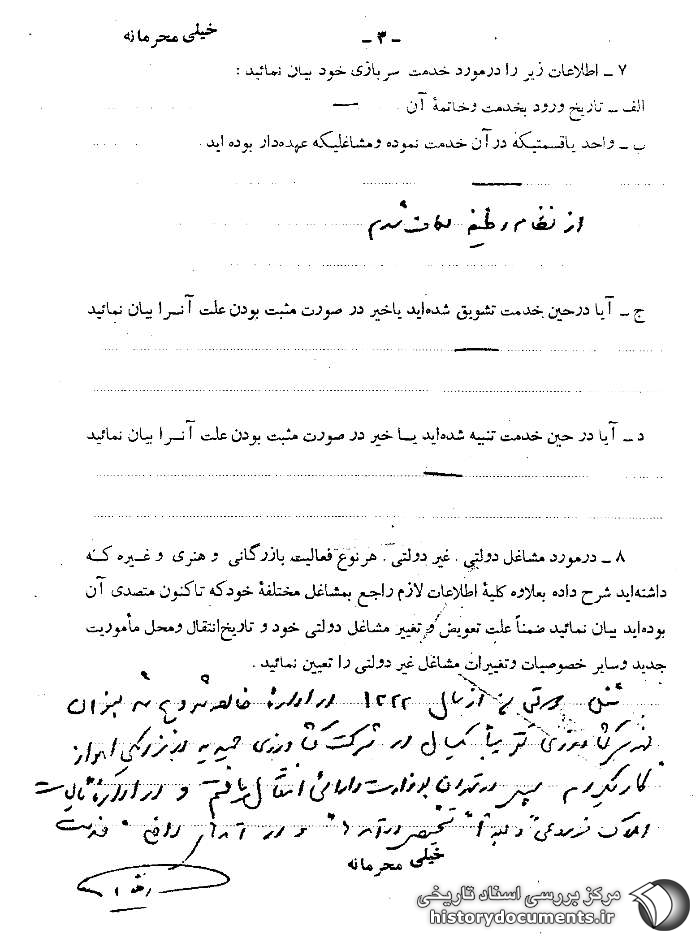 خیلی محرمانه
- ۳ -
۷ - اطلاعات زیر را درمورد خدمت سربازی خود بیان نمائید :
الف - تاریخ ورود بخدمت وخاتمهٔ آن —
ب - واحد یاقسمتیکه درآن خدمت نموده ومشاغلیکه عهده‌دار بوده اید
از نظام وظیفه معاف شدم
ج - آیا درحین خدمت تشویق شده‌اید یاخیر در صورت مثبت بودن علت آنرا بیان نمائید
د - آیا در حین خدمت تنبیه شده‌اید یا خیر در صورت مثبت بودن علت آنرا بیان نمائید
۸ - درمورد مشاغل دولتی . غیر دولتی . هرنوع فعالیت بازرگانی و هنری وغیره که
داشته‌اید شرح داده بعلاوه کلیهٔ اطلاعات لازم راجع بمشاغل مختلفهٔ خودکه تاکنون متصدی آن
بوده‌اید بیان نمائید ضمناً علت تعویض و تغییر مشاغل دولتی خود و تاریخ‌انتقال ومحل مأموریت
جدید وسایر خصوصیات وتغییرات مشاغل غیر دولتی را تعیین نمائید .
شغل دولتی از سال در ادارهٔ خالصه شروع شد بعنوان
کشاورزی تقریباً یکسال در شرکت کشاورزی اهواز
کار کردم سپس در تهران بوزارت دارائی انتقال یافتم و در ادارهٔ مالیات
املاک مزروعی و در
خیلی محرمانه
مرکز بررسی اسناد تاریخی
historydocuments.ir